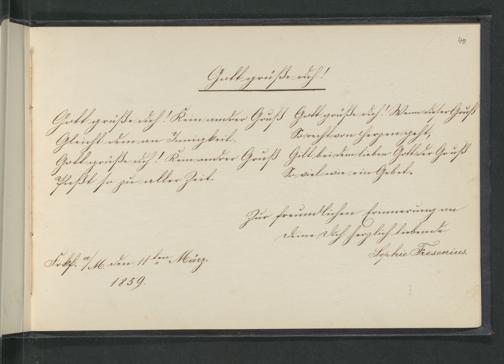 40
Gott grüße dich!
Gott grüße dich! Kein andrer Gruß
Gleicht dem an Innigkeit.
Gott grüße dich! Kein andrer Gruß
Paßt so zu aller Zeit.
Gott grüße dich! Wenn dieser Gruß
So recht von Herzen geht,
Gilt bei dem lieben Gott der Gruß
So viel wie ein Gebet.
Zur freundlichen Erinnerung an
deine Dich herzlich liebende
Sophie Fresenius.
Frkf. a/M. den 11ten März.
1859.